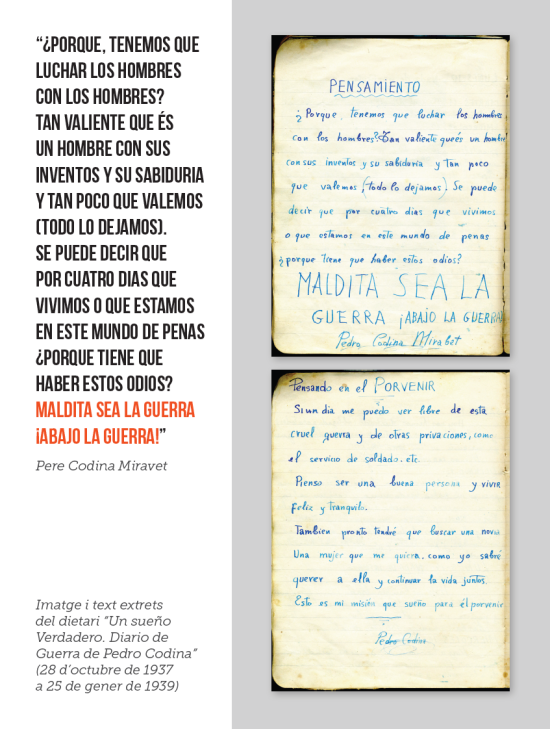 “¿PORQUE, TENEMOS QUE
LUCHAR LOS HOMBRES
CON LOS HOMBRES?
TAN VALIENTE QUE ÉS
UN HOMBRE CON SUS
INVENTOS Y SU SABIDURIA
Y TAN POCO QUE VALEMOS
(TODO LO DEJAMOS).
SE PUEDE DECIR QUE
POR CUATRO DIAS QUE
VIVIMOS O QUE ESTAMOS
EN ESTE MUNDO DE PENAS
¿PORQUE TIENE QUE
HABER ESTOS ODIOS?
MALDITA SEA LA GUERRA
¡ABAJO LA GUERRA!”
Pere Codina Miravet
Imatge i text extrets
del dietari “Un sueño
Verdadero. Diario de
Guerra de Pedro Codina”
(28 d’octubre de 1937
a 25 de gener de 1939)
PENSAMIENTO
¿Porque, tenemos que luchar los hombres
con los hombres? Tan valiente que és un hombre
con sus inventos y su sabiduria y tan poco
que valemos, (todo lo dejamos). Se puede
decir que por cuatro dias que vivimos
o que estamos en este mundo de penas
¿porque tiene que haber estos odios?
MALDITA SEA LA
GUERRA ¡ABAJO LA GUERRA!
Pedro Codina Mirabet
Pensando en el PORVENIR
Si un dia me puedo ver libre de esta
cruel guerra y de otras privaciones, como
el servicio de soldado. etc.
Pienso ser una buena persona y vivir
feliz y tranquilo.
Tambien pronto tendré que buscar una novia
Una mujer que me quiera, como yo sabré
querer a ella y continuar la vida juntos.
Esto es mi misión que sueño para él porvenir
Pedro Codina